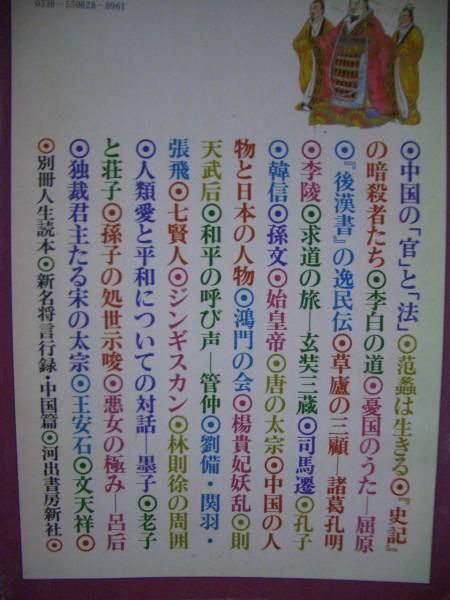 0336-550628-0961
◉中国の「官」と「法」◉范蠡は生きる◉『史記』
の暗殺者たち◉李白の道◉憂国のうた―屈原
◉『後漢書』の逸民伝◉草廬の三顧―諸葛孔明
◉李陵◉求道の旅―玄奘三蔵◉司馬遷◉孔子
◉韓信◉孫文◉始皇帝◉唐の太宗◉中国の人
物と日本の人物◉鴻門の会◉楊貴妃妖乱◉則
天武后◉和平の呼び声―管仲◉劉備・関羽・
張飛◉七賢人◉ジンギスカン◉林則徐の周囲
◉人類愛と平和についての対話 墨子◉老子
と荘子◉孫子の処世示唆◉悪女の極み―呂后
◉独裁君主たる宋の太宗◉王安石◉文天祥◉
◉別冊人生読本◉新名将言行録・中国篇◉河出書房新社◉